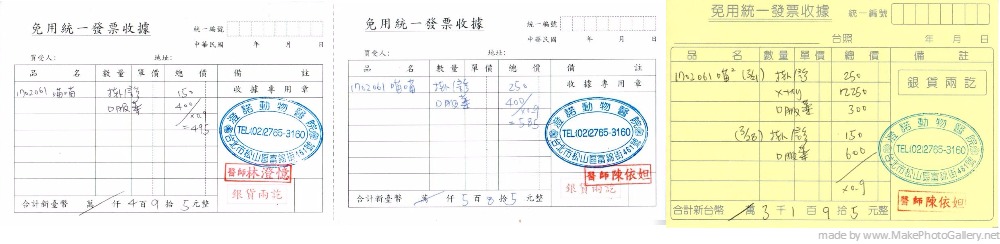 免用統一發票收據
統一編號
中華民國 年 月 日
買受人: 地址:
品 名 數量 單價 總價 備 註
1702061 喵喵 掛號 150 收據專用章
口服藥 400
x0.9
=495
澄諾動物醫院
TEL(02)2765-3160
台北市松山區富錦街461號
醫師 林澄億
銀貨兩訖
合計新臺幣 萬 仟 4 百 9 拾 5 元整
免用統一發票收據
統一編號
中華民國 年 月 日
買受人: 地址:
品 名 數量 單價 總價 備 註
1702061 喵喵 掛號 250 收據專用章
口服藥 400
x0.9
=585
澄諾動物醫院
TEL(02)2765-3160
台北市松山區富錦街461號
醫師 陳依妲
銀貨兩訖
合計新臺幣 萬 仟 5 百 8 拾 5 元整
免用統一發票收據
統一編號
台照 年 月 日
品 名 數量 單價 總價 備 註
1702061 喵² (3/1) 掛號 250
銀貨兩訖
x-ray 2250
口服藥 300
(3/8) 掛號 150
口服藥 600
x0.9
澄諾動物醫院
TEL(02)2765-3160
台北市松山區富錦街461號
醫師 陳依妲
合計新台幣 萬 3 千 1 百 9 拾 5 元整
made at www.MakePhotoGallery.net